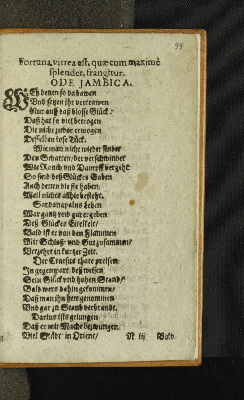 99
Fortuna vitrea est, quæ cum maximè
splendet, frangitur.
ODE JAMBICA.
Weh denen so da bawen
Vnd setzen jhr vertrawen
Nur auff daß blosse Glück:
Daß hat so viel betrogen
Die nicht zuvor erwogen
Desselben lose Tück.
Wie man nicht wieder findet
Den Schatten/ der verschwindet
Wie Rauch vnd Dampff vergeht:
So sind deß Glückes Gaben
Auch denen die sie haben
Weil nichts allhie besteht.
Sardanapalus Leben
War gantz vnd gar ergeben
Deß Glückes Eitelkeit/
Bald ist er von den Flammen
Mit Schloß vnd Gut zusammen/
Verzehrt in kurtzer Zeit.
Der Craesus thate preisen
In gegenpart deß weisen
Sein Glück vnd hohen Stand/
Bald wers dahin gekommen/
Daß man jhn hett genommen
Vnd gar zu Staub verbrandt.
Darius ists gelungen
Daß er mit Macht bezwungen
Viel Städt' in Orient/
N iij Bald